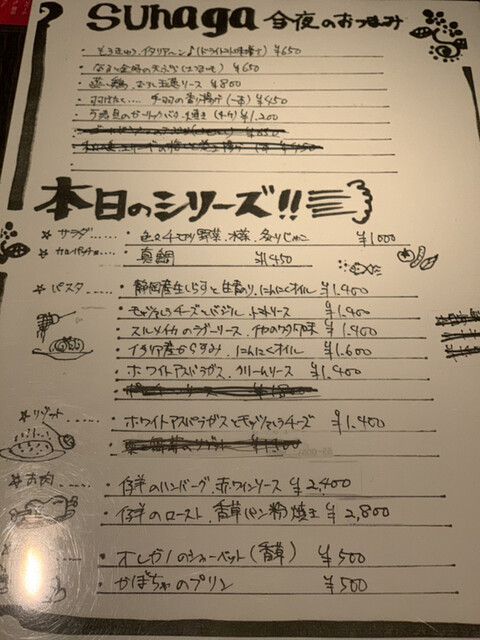 sunaga 今夜のおつまみ
・ イタリアーン♪(ドライトマト味噌汁) ¥650
・ ¥650
・ 蒸し鶏 玉葱ソース ¥800
・ 手羽の香り揚げ(一本) ¥450
・ のガーリックバター焼き ¥1,200
本日のシリーズ!!
☆ サラダ…… ・ 色々千切り野菜、水菜、炙りじゃこ ¥1000
☆ カルパッチョ… ・ 真鯛 ¥1450
☆ パスタ…… ・ 静岡産生しらすと生青のり、にんにくオイル ¥1.400
・ モッツァレラチーズとバジル、トマトソース ¥1.400
・ スルメイカのラグーソース、 ¥1.400
・ イタリア産からすみ、にんにくオイル ¥1.600
・ ホワイトアスパラガス、クリームソース ¥1,400
☆ リゾット…… ・ ホワイトアスパラガスとモッツァレラチーズ ¥1.400
☆ お肉…… ・ 仔羊のハンバーグ、赤ワインソース ¥2,400
・ 仔羊のロースト、香草パン粉焼き ¥2,800
・ オレガノのシャーベット(香草) ¥500
・ かぼちゃのプリン ¥500